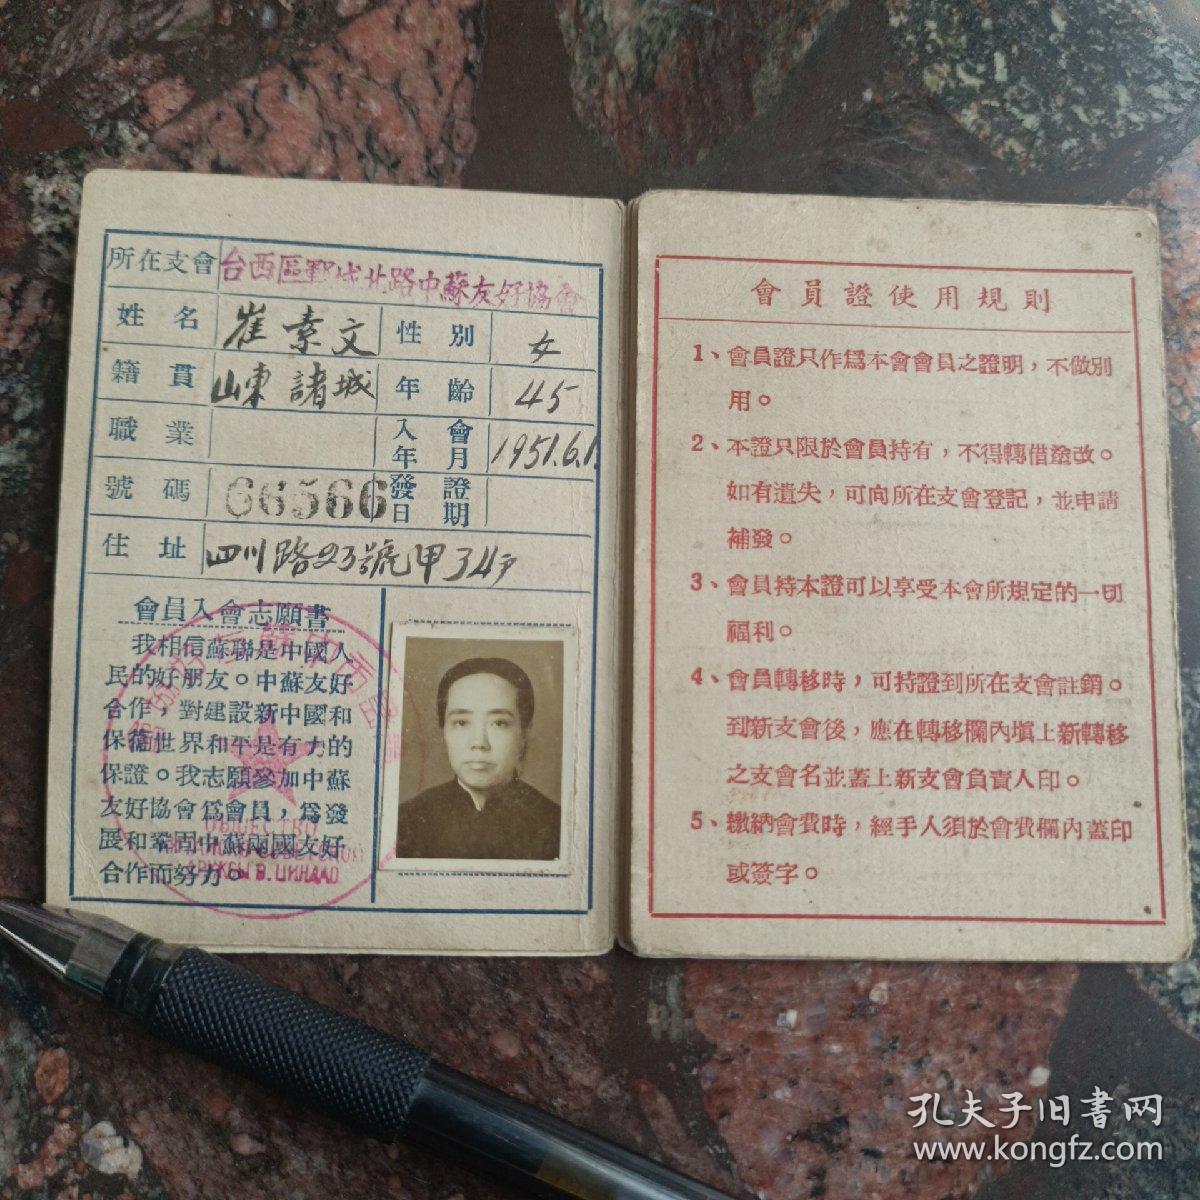 所在支會 台西區鄆城北路中蘇友好協會
姓名 崔素文 性別 女
籍貫 山東諸城 年齡 45
職業 入會年月 1951.6.1.
號碼 66566 發證日期
住址 四川路23號甲34戶
會員入會志願書
我相信蘇聯是中國人
民的好朋友。中蘇友好
合作，對建設新中國和
保衞世界和平是有力的
保證。我志願參加中蘇
友好協會爲會員，爲發
展和鞏固中蘇兩國友好
合作而努力。
ОБЩЕСТВО
ДРУЖБЫ В. ЦИНДАО
會員證使用規則
1、會員證只作爲本會會員之證明，不做別
用。
2、本證只限於會員持有，不得轉借塗改。
如有遺失，可向所在支會登記，並申請
補發。
3、會員持本證可以享受本會所規定的一切
福利。
4、會員轉移時，可持證到所在支會註銷。
到新支會後，應在轉移欄內填上新轉移
之支會名並蓋上新支會負責人印。
5、繳納會費時，經手人須於會費欄內蓋印
或簽字。
孔夫子旧書网
www.kongfz.com